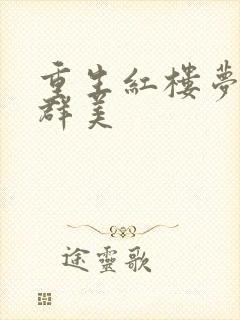 重生紅樓夢
群美
途靈歌